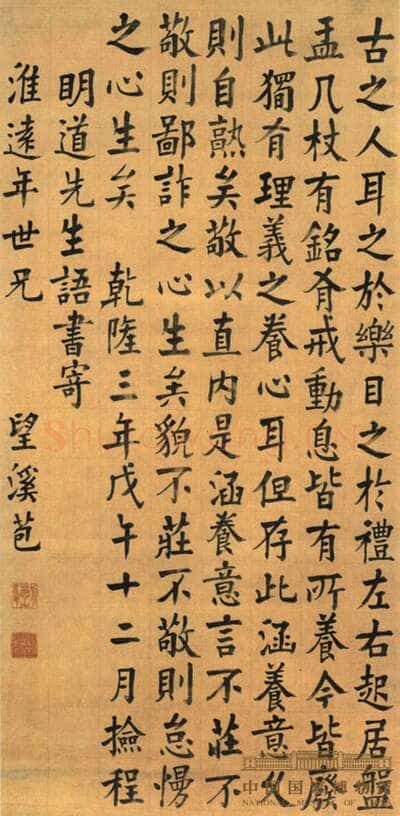 古之人耳之於樂目之於禮左右起居盤
盂几杖有銘有戒動息皆有所養今皆廢
此獨有理義之養心耳但存此涵養意久
則自熟矣敬以直內是涵養意言不莊不
敬則鄙詐之心生矣貌不莊不敬則怠慢
之心生矣 乾隆三年戊午十二月撿程
明道先生語書寄
淮遠年世兄 望溪苞
中国国家博物馆
NATIONAL MUSEUM OF